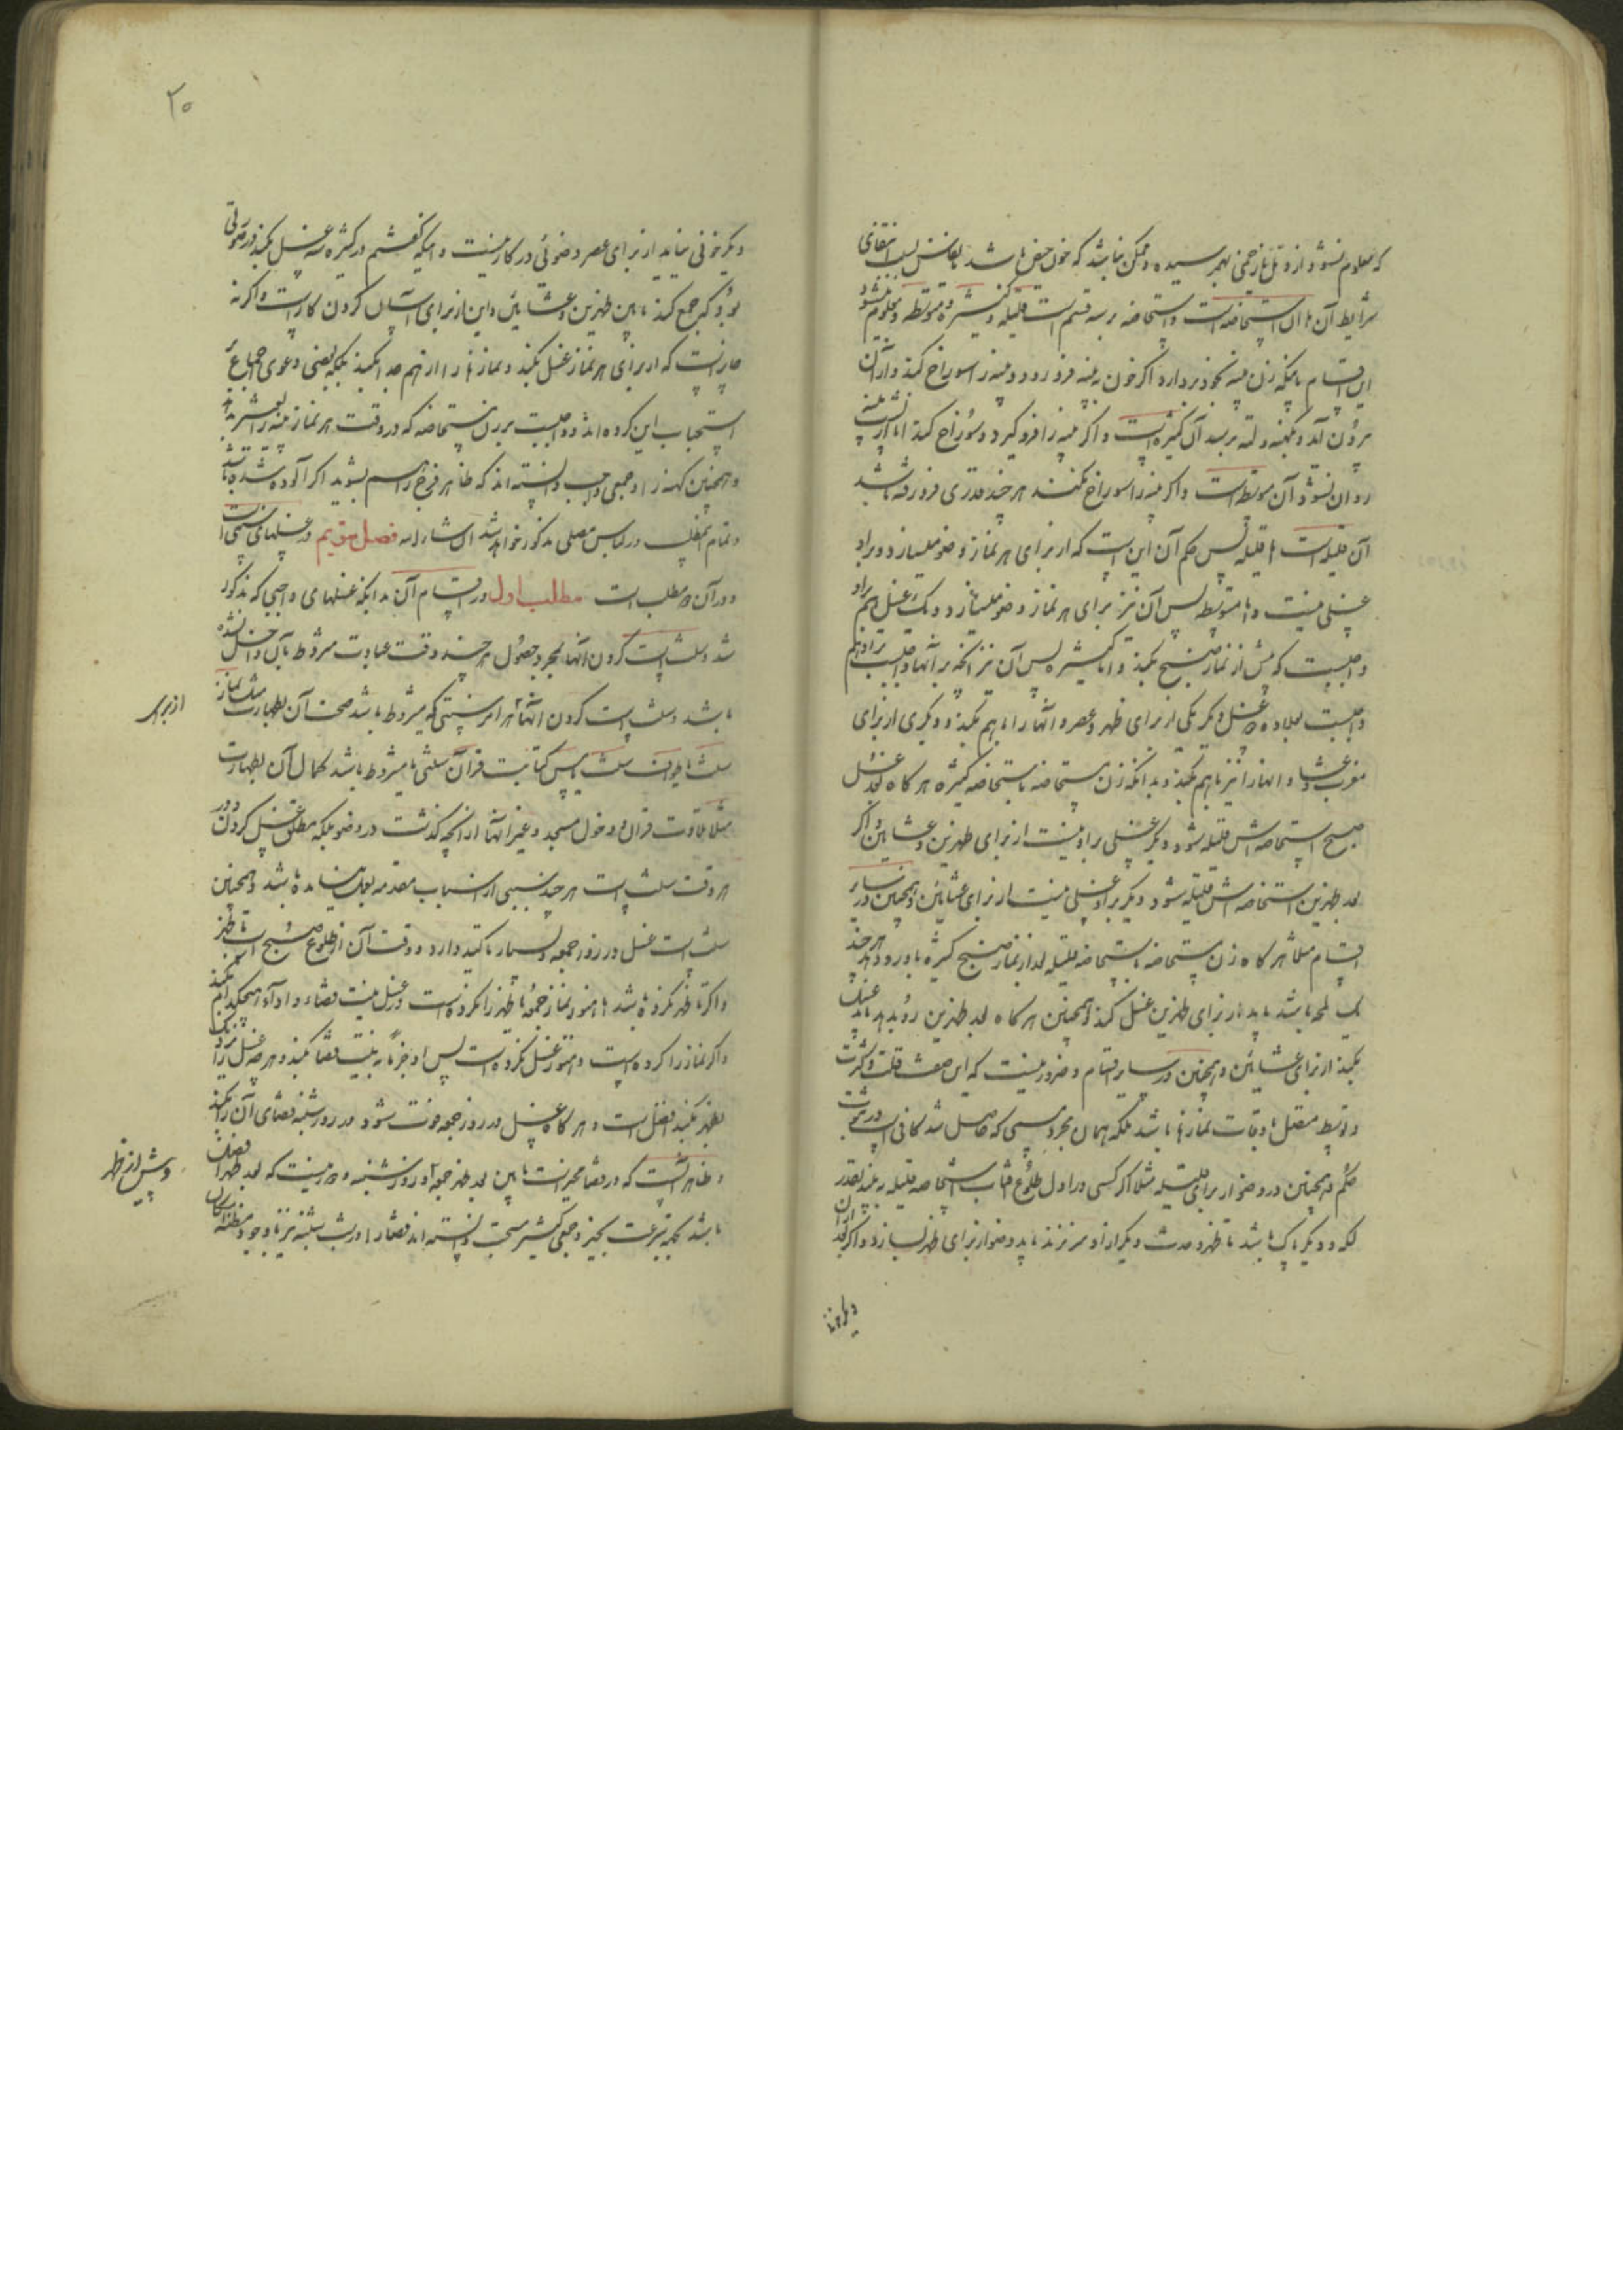 که معلوم نشود از دمل یا زخمی بهم رسیده و ممکن نباشد که خون حیض باشد یا نفاس بسبب انتفای
شرایط آن یا آن استحاضه است و استحاضه بر سه قسم است قلیله و کثیره و متوسطه و معلوم میشود
این اقسام باینکه زن پنبه بخود بردارد اگر خون به پنبه فرو رود و پنبه را سوراخ کند و از آن
بیرون آید و بکهنه و لته برسد آن کثیره است و اگر پنبه را فرو گیرد و سوراخ کند اما از پنبه
روان نشود آن متوسطه است و اگر پنبه را سوراخ نکند هر چند قدری فرو رفته باشد
آن قلیله است اما قلیله پس حکم آن این است که از برای هر نماز وضو میسازد و بر او
غسلی نیست و اما متوسطه پس آن نیز برای هر نماز وضو میسازد و یک غسل هم بر او
واجبست که پیش از نماز صبح بکند و اما کثیره پس آن نیز آنچه بر آنها واجبست بر او هم
واجبست بعلاوه دو غسل دیگر یکی از برای ظهر و عصر و آنها را با هم بکند و دیگری از برای
مغرب و عشا و آنها را نیز با هم بکند و بدانکه زن مستحاضه باستحاضه کثیره هر گاه بعد غسل
صبح استحاضه‌اش قلیله شود دیگر غسلی بر او نیست از برای ظهرین و عشایین و اگر
بعد ظهرین استحاضه‌اش قلیله شود دیگر بر او غسلی نیست از برای عشائین و همچنین در سایر
اقسام مثلا هر گاه زن مستحاضه باستحاضه قلیله بعد از نماز صبح کثیره باو رو دهد هر چند
یک لمحه باشد باید از برای ظهرین غسل کند و همچنین هر گاه بعد ظهرین رو بدهد باید غسل
بکند از برای عشائین و همچنین در سایر اقسام و ضرور نیست که این صفت قلت و کثرت
و توسط متصل باوقات نمازها باشد بلکه همان مجرد مسمی که حاصل شد کافی است در ثبوت
حکم و همچنین در وضو از برای قلیله مثلا اگر کسی در اول طلوع آفتاب استحاضه قلیله به بیند بقدر
لکه و دیگر پاک باشد تا ظهر و حدث دیگر از او سر نزند باید وضو از برای ظهر بسازد و اگر بعد از آن
دیگر خونی
۲۰
دیگر خونی نیاید از برای عصر وضوئی در کار نیست و اینکه گفتیم در کثیره سه غسل بکند در صورتی
بود که جمع کند مابین ظهرین و عشائین و این از برای آسان کردن کار است و اگر نه
جایز است که از برای هر نماز غسل بکند و نمازها را از هم جدا بکند بلکه بعضی دعوی اجماع
استحباب این کرده‌اند و واجبست بر زن مستحاضه که در وقت هر نماز پنبه را تغییر بدهد
و همچنین کهنه را و جمعی واجب دانسته‌اند که ظاهر فرج را هم بشوید اگر آلوده شده باشد
و تمام این مطلب در لباس مصلی مذکور خواهد شد ان شاء الله فصل سویم در غسلهای سنتی است
و در آن دو مطلب است مطلب اول در اقسام آن بدانکه غسلهای واجبی که مذکور
شد سنت است کردن آنها بمجرد حصول هر چند وقت عبادت مشروط بآن داخل نشده
باشد و سنت است کردن آنها هر امر سنتی که مشروط باشد صحت آن بطهارت مثل نماز
از برای
سنت یا طواف سنت یا مس کتابت قرآن سنتی یا مشروط باشد کمال آن بطهارت
مثلا تلاوت قرآن و دخول مسجد و غیر آنها از آنچه گذشت در وضو بلکه مطلق غسل کردن در
هر وقت سنت است هر چند سببی از اسباب مقدمه بعمل نیامده باشد و همچنین
سنت است غسل در روز جمعه و بسیار تاکید دارد و وقت آن از طلوع صبح است تا ظهر
و اگر تا ظهر نکرده باشد اما هنوز نماز جمعه یا ظهر را نکرده است غسل نیت قضاء و اداء هیچکدام نکند
و اگر نماز را کرده است و هنوز غسل نکرده است پس او جزما به نیت قضا بکند و هر چه غسل را نزدیک
بظهر بکند افضل است و هر گاه غسل در روز جمعه فوت شود در روز شنبه قضای آن را بکند
و ظاهر آنست که در قضا مخیر است مابین بعد ظهر جمعه و روز شنبه و دور نیست که بعد ظهر افضل
و پیش از ظهر
باشد بجهة سرعت بخیر و جمعی کثیر مستحب دانسته‌اند قضا را در شب شنبه نیز با وجود